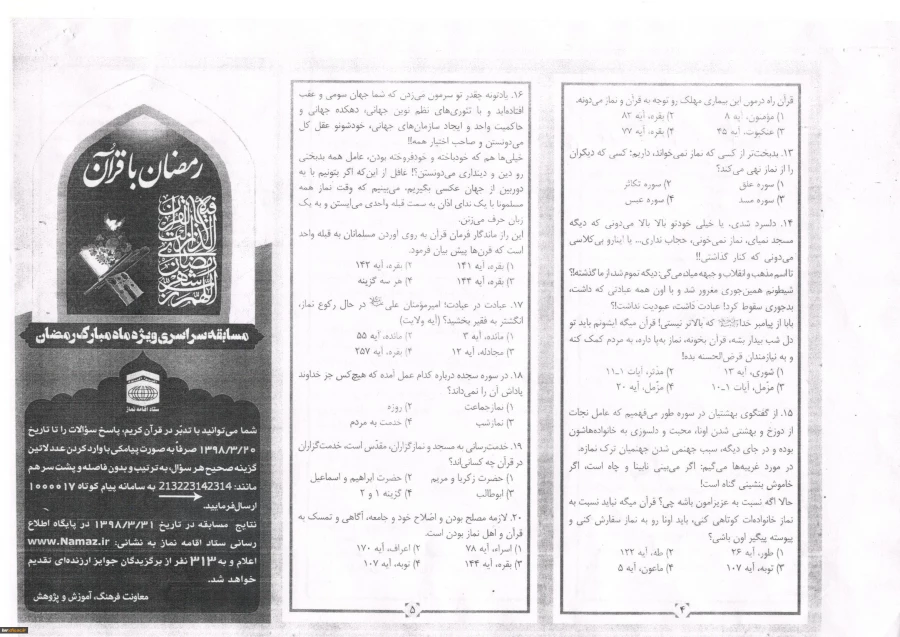 قرآن راه درمون این بیماری مهلک رو توجه به قرآن و نماز می‌دونه.
۱) مؤمنون، آیه ۸
۲) بقره، آیه ۸۲
۳) عنکبوت، آیه ۴۵
۴) بقره، آیه ۷۷
۱۳. بدبخت‌تر از کسی که نماز نمی‌خواند، داریم: کسی که دیگران
را از نماز نهی می‌کند؟
۱) سوره علق
۲) سوره تکاثر
۳) سوره مسد
۴) سوره عبس
۱۴. دلسرد شدی، یا خیلی خودتو بالا بالا می‌دونی که دیگه
مسجد نمیای، نماز نمی‌خونی، حجاب نداری... یا اینارو بی‌کلاسی
می‌دونی که کنار گذاشتی!!
تا اسم مذهب و انقلاب و جبهه میاد می‌گی: دیگه تموم شد، از ما گذشته!؟
شیطونم همین‌جوری مغرور شد و با اون همه عبادتی که داشت،
بدجوری سقوط کرد! عبادت داشت، عبودیت نداشت!؟
بابا از پیامبر خدا که بالاتر نیستی! قرآن میگه ایشونم باید تو
دل شب بیدار بشه، قرآن بخونه، نماز به‌پا داره، به مردم کمک کنه
و به نیازمندان قرض‌الحسنه بده!
۱) شوری، آیه ۱۳
۲) مدثر، آیات ۱-۱۱
۳) مزّمل، آیات ۱-۱۰
۴) مزّمل، آیه ۲۰
۱۵. از گفتگوی بهشتیان در سوره طور می‌فهمیم که عامل نجات
از دوزخ و بهشتی شدن اونا، محبت و دلسوزی به خانواده‌هاشون
بوده و در جای دیگه، سبب جهنمی شدن جهنمیان ترک نمازه.
در مورد غریبه‌ها می‌گیم: اگر می‌بینی نابینا و چاه است، اگر
خاموش بنشینی گناه است!
حالا اگه نسبت به عزیزامون باشه چی؟ قرآن میگه نباید نسبت به
نماز خانواده‌ات کوتاهی کنی، باید اونا رو به نماز سفارش کنی و
پیوسته پیگیر اون باشی؟
۱) طور، آیه ۲۶
۲) طه، آیه ۱۳۲
۳) توبه، آیه ۱۰۷
۴) ماعون، آیه ۵
۴
۱۶. یادتونه چقدر تو سرمون می‌زدن که شما جهان سومی و عقب
افتاده‌اید و با تئوری‌های نظم نوین جهانی، دهکده جهانی و
حاکمیت واحد و ایجاد سازمان‌های جهانی، خودشونو عقل کل
می‌دونستن و صاحب اختیار همه!!
خیلی‌ها هم که خودباخته و خودفروخته بودن، عامل همه بدبختی
رو دین و دینداری می‌دونستن؟! غافل از این‌که اگر بتونیم با یه
دوربین از جهان عکسی بگیریم، می‌بینیم که وقت نماز همه
مسلمونا با یک ندای اذان به سمت قبله واحدی می‌ایستن و به یک
زبان حرف می‌زنن.
این راز ماندگار فرمان قرآن به روی آوردن مسلمانان به قبله واحد
است که قرن‌ها پیش بیان فرمود.
۱) بقره، آیه ۱۴۱
۲) بقره، آیه ۱۴۲
۳) بقره، آیه ۱۴۴
۴) هر سه گزینه
۱۷. عبادت در عبادت؛ امیرمؤمنان علی در حال رکوع نماز،
انگشتر به فقیر بخشید؟ (آیه ولایت)
۱) مائده، آیه ۳
۲) مائده، آیه ۵۵
۳) مجادله، آیه ۱۲
۴) بقره، آیه ۲۵۷
۱۸. در سوره سجده درباره کدام عمل آمده که هیچ‌کس جز خداوند
پاداش آن را نمی‌داند؟
۱) نمازجماعت
۲) روزه
۳) نمازشب
۴) خدمت به مردم
۱۹. خدمت‌رسانی به مسجد و نمازگزاران، مقدّس است، خدمت‌گزاران
در قرآن چه کسانی‌اند؟
۱) حضرت زکریا و مریم
۲) حضرت ابراهیم و اسماعیل
۳) ابوطالب
۴) گزینه ۱ و ۲
۲۰. لازمه مصلح بودن و اصلاح خود و جامعه، آگاهی و تمسک به
قرآن و اهل نماز بودن است.
۱) اسراء، آیه ۷۸
۲) اعراف، آیه ۱۷۰
۳) بقره، آیه ۱۴۴
۴) توبه، آیه ۱۰۷
۵
رمضان با قرآن
مسابقه سراسری ویژه ماه مبارک رمضان
ستاد اقامه نماز
شما می‌توانید با تدبّر در قرآن کریم، پاسخ سؤالات را تا تاریخ
۱۳۹۸/۳/۲۰ صرفاً به صورت پیامکی با وارد کردن عدد لاتین
گزینه صحیح هر سؤال، به ترتیب و بدون فاصله و پشت سر هم
مانند: 213223142314 به سامانه پیام کوتاه ۱۰۰۰۰۱۷
ارسال فرمایید.
نتایج مسابقه در تاریخ ۱۳۹۸/۳/۳۱ در پایگاه اطلاع
رسانی ستاد اقامه نماز به نشانی: www.Namaz.ir
اعلام و به ۳۱۳ نفر از برگزیدگان جوایز ارزنده‌ای تقدیم
خواهد شد.
معاونت فرهنگ، آموزش و پژوهش